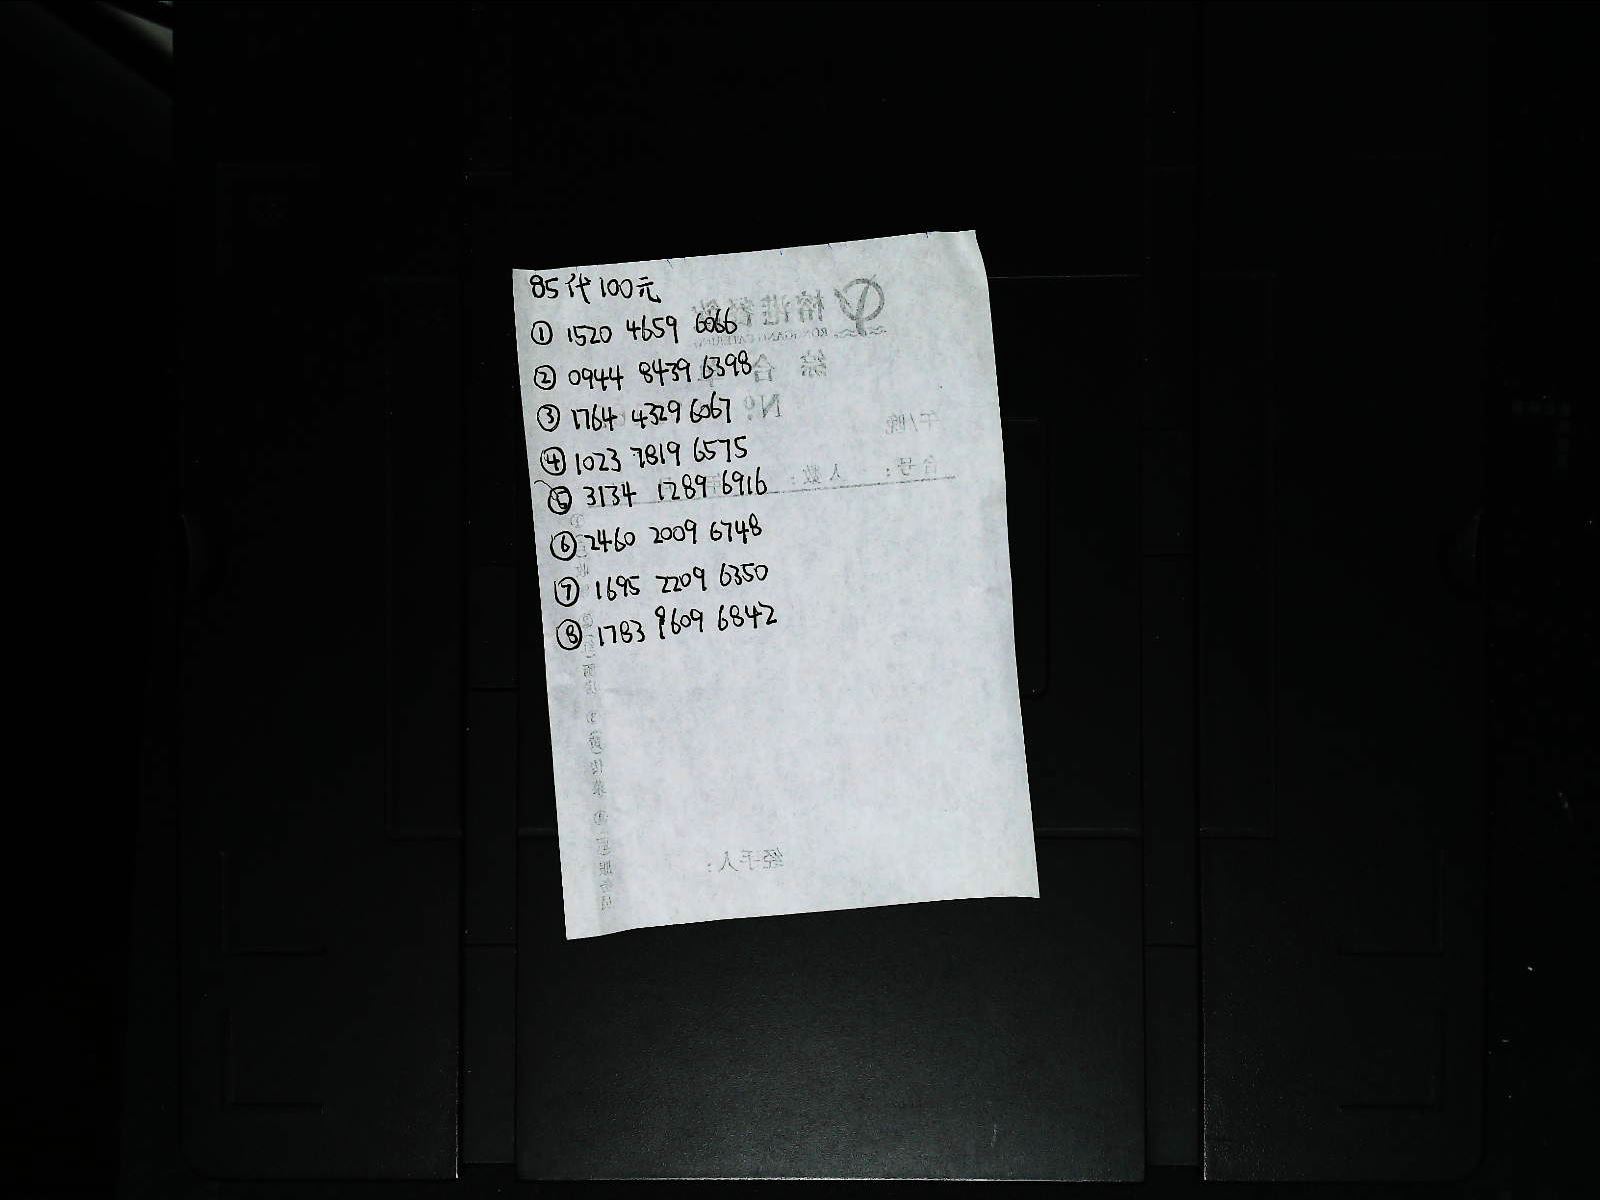 85代100元
① 1520 4659 6066
② 0944 8439 6398
③ 1764 4329 6067
④ 1023 7819 6575
⑤ 3134 1289 6916
⑥ 2460 2009 6748
⑦ 1695 2209 6350
⑧ 1783 9609 6842
综合单
No
午/晚
台号: 人数:
经手人: